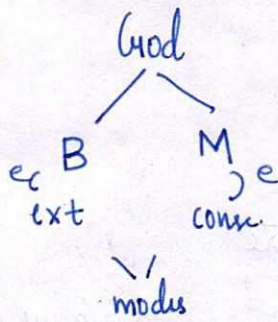 God
B M
ec e
ext consc.
modes